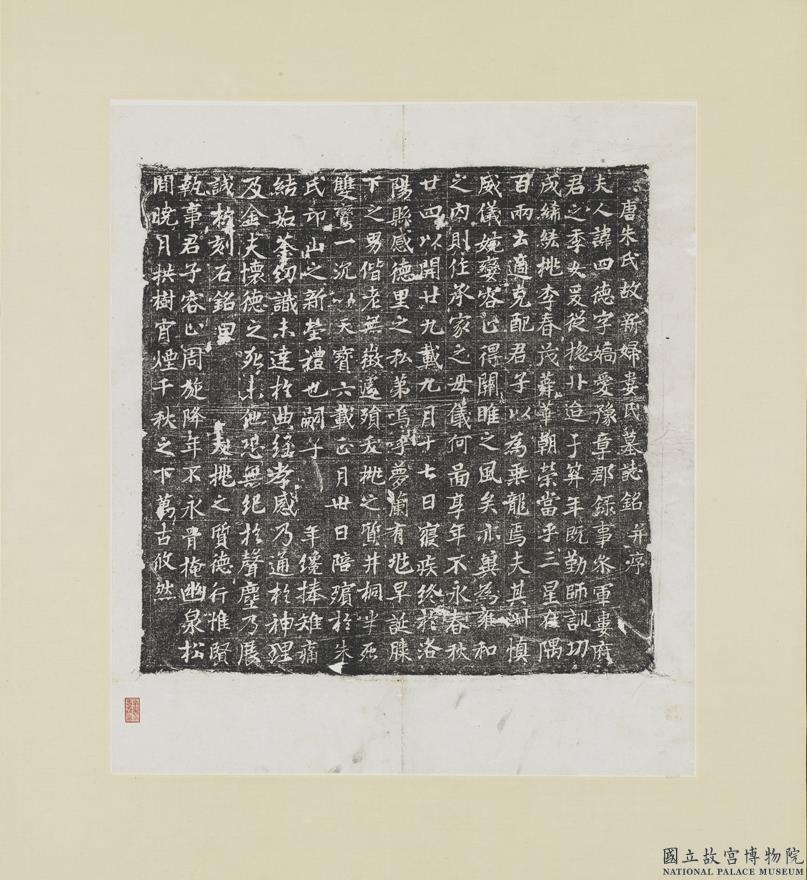 唐朱氏故新婦婁氏墓誌銘并序
夫人諱四德字嬌愛豫章郡錄事參軍婁府
君之季女爰從捴丱迨于笄年既勤師訓功
成締綌桃李春茂蕣華朝榮當乎三星在隅
百兩云適克配君子以為乘龍焉夫其淑慎
威儀婉孌容止得關雎之風矣亦無為雍和
之內則任承家之母儀何啚享年不永春秋
廿四以開廿九載九月十七日寢疾終於洛
陽縣感德里之私第嗚呼夢蘭有兆早誕膝
下之男偕老無徵遽殞夭桃之質井桐半死
雙鸞一沉以天寶六載正月卅日陪殯於朱
氏邙山之新塋禮也嗣子 年纔捧雉痛
結茹荼幼識未達於曲經孝感乃通於神理
及金夫懷德之 未他恐無紀於聲塵乃展
誠於刻石銘曰 夭桃之質德行惟賢
執事君子容止周旋降年不永骨掩幽泉松
間曉月拱樹宵煙千秋之下萬古攸然
國立故宮博物院
NATIONAL PALACE MUSEUM